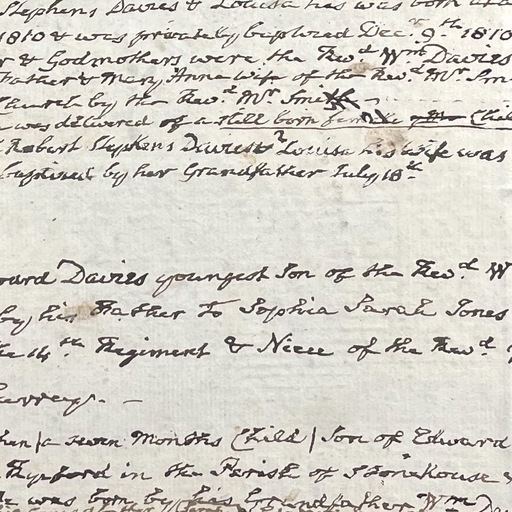 Stephens Davies & Louisa his was born at
1810 & was privately baptized Dec.r 9.th 1810
r & Godmothers were the Rev.d Wm Davies
Father & Mary Anne wife of the Rev.d Mr. Sm
Church by the Rev.d Mr. Smith
was delivered of a still born female Chil
Robert Stephens Davies & Louisa his Wife was
baptized by her Grandfather July 18th
ward Davies youngest Son of the Rev.d W
by his Father to Sophia Sarah Jones
he 14.th Regiment & Niece of the Rev.d
Surreys. -
hen / a seven Months Child / Son of Edward
in the Parish of Stonehouse
was born by his Grandfather Wm Da